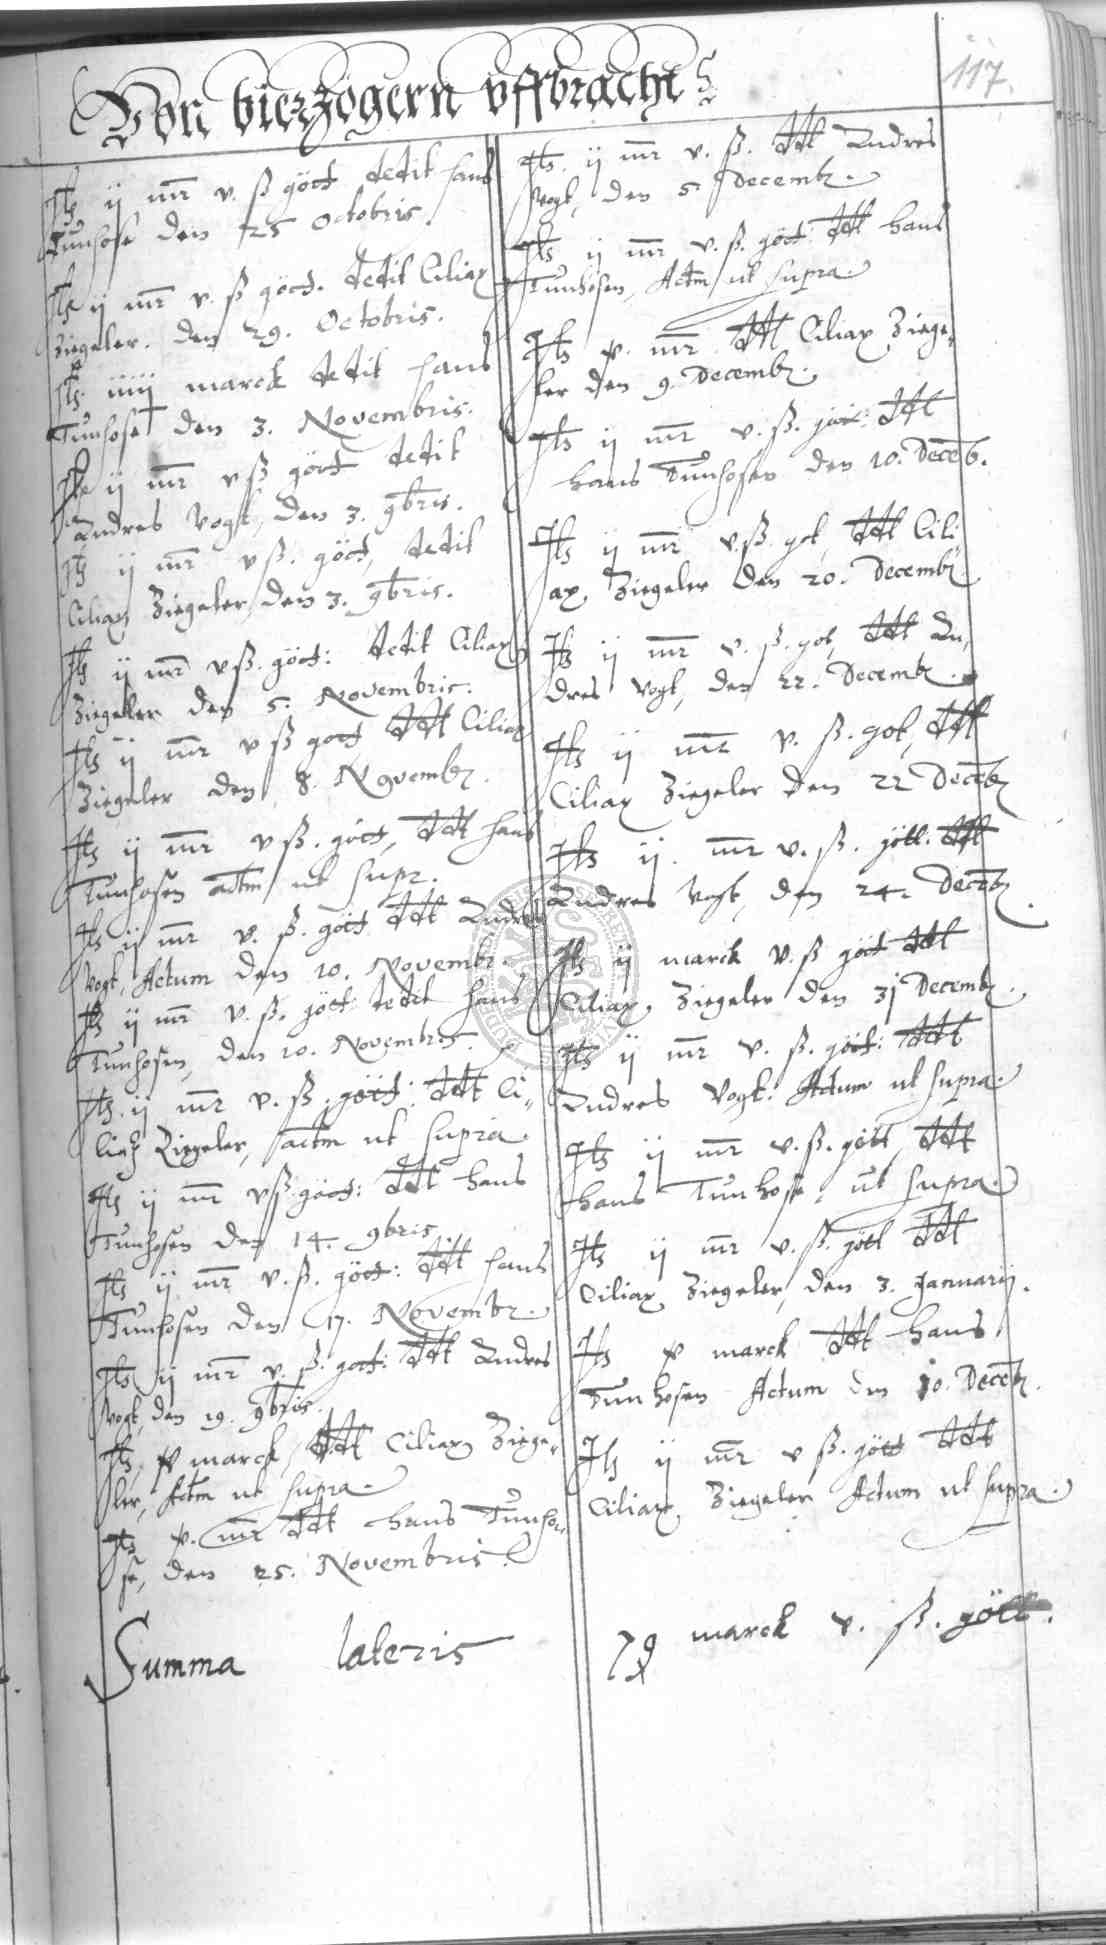 Von bierzögern uffbracht
117.
Its ij mr v. ß göttˀ dedit hans
Tunhose den 25 Octobris.
Its ij mr v. ß göttˀ. dedit Ciliax
Ziegeler. den 29. Octobris.
Its. iiij marck dedit hans
Tunhose den 3. Novembris.
Its ij mr v ß göttˀ dedit
Andres Vogt, den 3. 9bris.
Its ij mr v ß. göttˀ, dedit
Ciliax Ziegeler, den 3. 9bris.
Its ij mr v ß. göttˀ: dedit Ciliax
Ziegeler den 5. Novembris.
Its ij mr v ß gottˀ ddt Ciliax
Ziegeler den 8. Novembr.
Its ij mr v ß. göttˀ, ddt hans
Tunhosen actm ut supr.
Its ij mr v. ß. göttˀ ddt Andres
Vogt, Actum den 10. Novembr.
Its ij mr v. ß. göttˀ dedit hans
Tunhosen, den 10. Novembris.
Its. ij mr v. ß. göttˀ: ddt Ci„
liax Ziegeler, actm ut supra.
Its ij mr v ß göttˀ: ddt hans
Tunhosen den 14. 9bris
Its ij mr v. ß. göttˀ: ddt hans
Tunhosen den 17. Novembr.
Its ij mr v. ß. gottˀ: ddt Andres
Vogt, den 19. 9bris.
Its, v marck, ddt Ciliax Ziege„
ler, Actm ut supra.
Its v. mr ddt hans Tunho„
se, den 25. Novembris.
Its. ij mr v. ß. ddt Andres
Vogt, den 5. Decemb.
Its ij mr v. ß. göttˀ ddt hans
Tunhosen, Actm ut supra.
Its v. mr ddt Ciliax Ziege„
ler den 9. Decemb.
Its ij mr v. ß. götˀ: ddt
hans Tunhosen den 10. Deceb.
Its ij mr v. ß. got, ddt Cili
ax Ziegeler den 20. Decemb.
Its ij mr v. ß. got, ddt An„
dres Vogt, den 22. Decemb.
Its ij mr v. ß. got, ddt
Ciliax Ziegeler den 22 Deceb
Its ij. mr v. ß. gött. ddt
Andres Vogt, den 24. Deceb.
Its ij marck v. ß göttˀ ddt
Ciliax Ziegeler den 31 Decemb.
Its ij mr v. ß. göttˀ: ddt
Andres Vogt. Actum ut supra.
Its ij mr v. ß. gött, ddt
hans Tunhose, ut supra.
Its ij mr v. ß. gött ddt
Ciliax Ziegeler, den 3. Januarij.
Its v marck ddt hans
Tunhosen Actum den 10. Deceb.
Its ij mr v ß. gött ddt
Ciliax Ziegeler Actum ut supra.
Summa lateris
marck v. ß. gött.